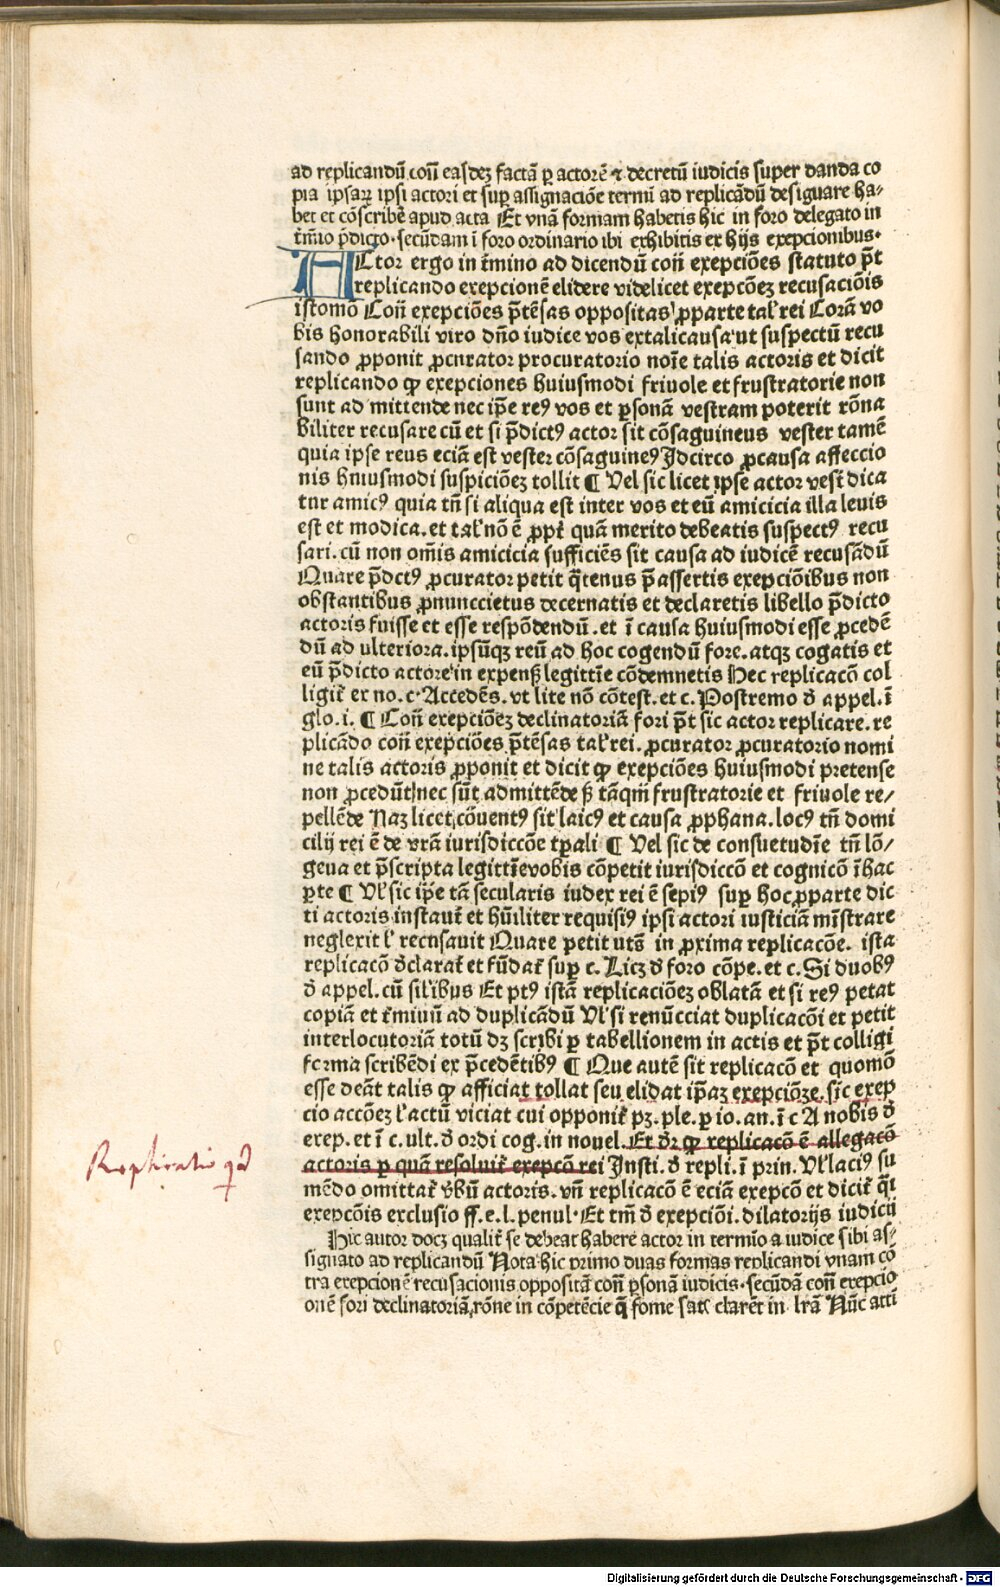 ad replicandū.coñ easdez factā ꝑ actorē ⁊ decretū iudicis super danda co
pia ipsaꝝ ipsi actori et suꝑ assignaciōe termī ad replicādū designare ha-
bet et cōscribē apud acta Et vnā formam habetis hic in foro delegato in
t̄mīo p̄dicto·secūdam ī foro ordinario ibi exhibitis ex hijs exepcionibus·
ACtor ergo in t̄mino ad dicendū coñ exepciōes statuto p̄t
replicando exepcionē elidere videlicet exepcōez recusaciōis
istomō Coñ exepciōes p̄tēsas oppositas ꝓparte tal' rei Corā vo
bis honorabili viro dn̄o iudice vos ex tali causa vt suspectū recu
sando ꝓponit ꝓcurator procuratorio noīe talis actoris et dicit
replicando ꝙ exepciones huiusmodi friuole et frustratorie non
sunt ad mittende nec ip̄e reꝰ vos et ꝑsonā vestram poterit rōna
biliter recusare cū et si p̄dictꝰ actor sit cōsaguineus vester tamē
quia ipse reus eciā est vester cōsaguineꝰ Idcirco ꝓcausa affeccio
nis hniusmodi suspiciōez tollit ¶ Vel sic licet ipse actor vest̄ dica
tur amicꝰ quia tn̄ si aliqua est inter vos et eū amicicia illa leuis
est et modica.et tal' nō ē ꝓpt̄ quā merito debeatis suspectꝰ recu
sari.cū non om̄is amicicia sufficiēs sit causa ad iudicē recusādū
Quare p̄dctꝰ ꝓcurator petit q̄tenus p̄assertis exepciōibus non
obstantibus ꝓnunccietus decernatis et declaretis libello p̄dicto
actoris fuisse et esse respōdendū.et ī causa huiusmodi esse ꝓcedē
dū ad vlteriora.ipsūqꝫ reū ad hoc cogendū fore.atqꝫ cogatis et
eū p̄dicto actore in expenß legittīe cōdemnetis Hec replicacō col
ligit̄ ex no.c·Accedēs.vt lite nō cōtest.et c.Postremo d̄ appel.ī
glo.i.¶ Coñ exepciōez declinatoriā fori p̄t sic actor replicare.re
plicādo coñ exepciōes p̄tēsas tal' rei.ꝓcurator ꝓcuratorio nomi
ne talis actoris ꝓponit et dicit ꝙ exepciōes huiusmodi pretense
non ꝓcedūt nec sūt admittēde ß tāqm̄ frustratorie et friuole re/
pellēde Naz licet cōuentꝰ sit laicꝰ et causa ꝓphana.locꝰ tn̄ domi
cilij rei ē de vrā iurisdiccōe tꝑali ¶ Vel sic de consuetudīe tn̄ lō/
geua et p̄scripta legittīe vobis cōpetit iurisdiccō et cognicō ī hac
ꝑte ¶ Vl' sic ip̄e tā secularis iudex rei ē sepiꝰ suꝑ hoc ꝓparte dic
ti actoris instant̄ et hūiliter requisiꝰ ipsi actori iusticiā mīstrare
neglexit l' recnsauit Quare petit vts̄ in ꝓxima replicacōe. ista
replicacō d̄clarat̄ et fūdat̄ suꝑ c.Licꝫ d̄ foro cōpe.et c.Si duobꝰ
d̄ appel.cū sil'ibus Et ptꝰ istā replicaciōez oblatā et si reꝰ petat
copiā et t̄minū ad duplicādū Vl' si renūcciat duplicacōi et petit
interlocutoriā totū dꝫ scribi ꝑ tabellionem in actis et p̄t colligi
forma scribēdi ex p̄cedētibꝰ ¶ Que autē sit replicacō et quomō
esse deāt talis ꝙ afficiat tollat seu elidat ip̄az exepciōze.sic exep
cio accōez l' actū viciat cui opponit̄ pꝫ.ple.ꝑ io.an.ī c A nobis d̄
excp.et ī c.vlt.d̄ ordi cog.in nouel.Et dr̄ ꝙ replicacō ē allegacō
actoris ꝑ quā resoluit̄ exepcō rei Insti.d̄ repli.ī prin.Vl' laciꝰ su
mēdo omittat̄ v̄bū actoris.vn̄ replicacō ē eciā exepcō et dicit̄ q̄i
exepcōis exclusio ff.e.l.penul·Et tm̄ d̄ exepciōi.dilatorijs iudicij
Hic autor docꝫ qualit̄ se debeat habere actor in termīo a iudice sibi as-
signato ad replicandū Nota hic primo duas formas replicandi vnam cō
tra exepcionē recusacionis oppositā coñ ꝑsonā iudicis·secūdā coñ exepcio
onē fori declinatoriā,rōne in cōpetēcie q̄ fome satꝭ clarēt in lrā Nūc atti
Replicatio qd
Digitalisierung gefördert durch die Deutsche Forschungsgemeinschaft - DFG